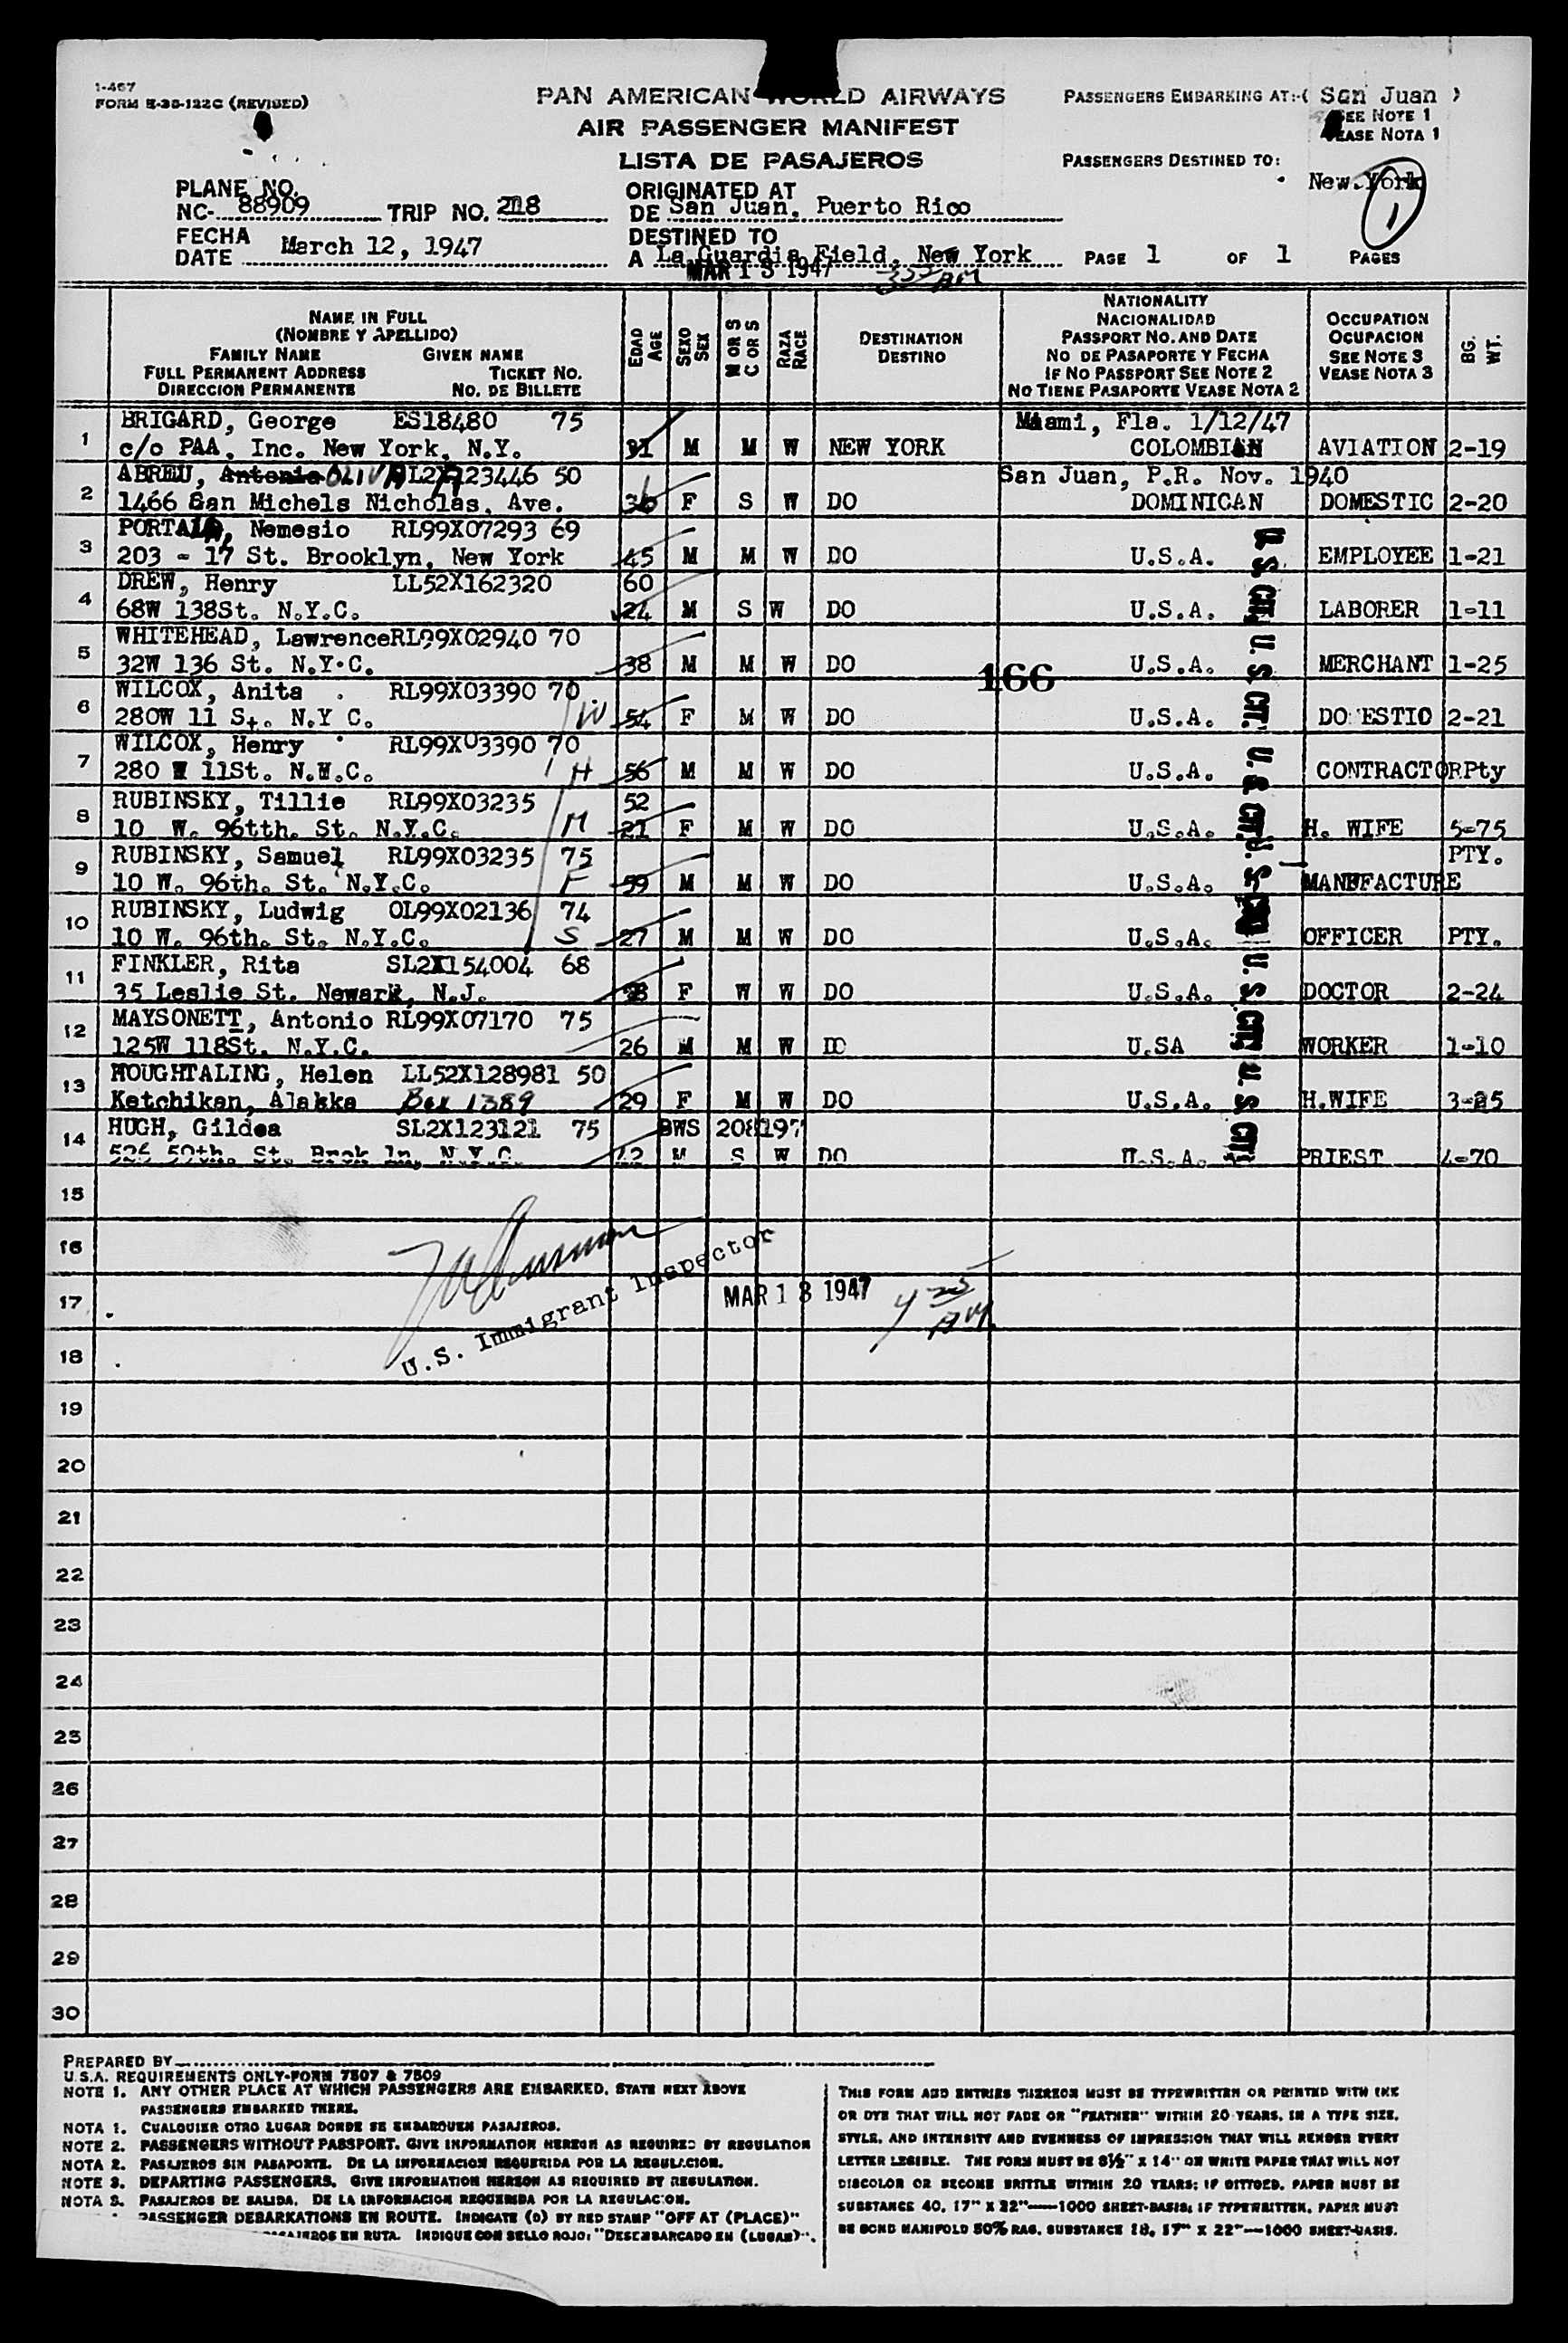 1-467
FORM E-38-122C (REVISED)
PAN AMERICAN WORLD AIRWAYS
AIR PASSENGER MANIFEST
LISTA DE PASAJEROS
PASSENGERS EMBARKING AT:-( San Juan )
SEE NOTE 1
VEASE NOTA 1
PASSENGERS DESTINED TO:
New York
1
PLANE NO.
NC- 88909 TRIP NO. 218
ORIGINATED AT
DE San Juan, Puerto Rico
FECHA
DATE March 12, 1947
DESTINED TO
A La Guardia Field, New York
MAR 13 1947
355 AM
PAGE 1 OF 1 PAGES
NAME IN FULL
(NOMBRE Y APELLIDO)
FAMILY NAME GIVEN NAME
FULL PERMANENT ADDRESS TICKET NO.
DIRECCION PERMANENTE NO. DE BILLETE
EDAD AGE
SEXO SEX
M OR S
C OR S
RAZA RACE
DESTINATION
DESTINO
NATIONALITY
NACIONALIDAD
PASSPORT NO. AND DATE
NO DE PASAPORTE Y FECHA
IF NO PASSPORT SEE NOTE 2
NO TIENE PASAPORTE VEASE NOTA 2
OCCUPATION
OCUPACION
SEE NOTE 3
VEASE NOTA 3
BG. WT.
BRIGARD, George ES18480 75 Miami, Fla. 1/12/47
1 c/o PAA, Inc. New York, N.Y. 31 M M W NEW YORK COLOMBIAN AVIATION 2-19
ABREU, Antonio OLIVA 23446 50 San Juan, P.R. Nov. 1940
2 1466 San Michels Nicholas, Ave. 36 F S W DO DOMINICAN DOMESTIC 2-20
Nemesio RL99X07293 69
3 203 - 17 St. Brooklyn, New York 45 M M W DO U.S.A. EMPLOYEE 1-21
DREW, Henry LL52X162320 60
4 68W 138St. N.Y.C. 24 M S W DO U.S.A. LABORER 1-11
WHITEHEAD, Lawrence RL99X02940 70
5 32W 136 St. N.Y.C. 38 M M W DO U.S.A. MERCHANT 1-25
166
WILCOX, Anita RL99X03390 70
6 280W 11 St. N.Y C. W 54 F M W DO U.S.A. DOMESTIC 2-21
WILCOX, Henry RL99X03390 70
7 280 W 11St. N.Y.C. H 56 M M W DO U.S.A. CONTRACTOR Pty
RUBINSKY, Tillie RL99X03235 52
8 10 W. 96tth. St. N.Y.C. M 21 F M W DO U.S.A. H. WIFE 5-75
RUBINSKY, Samuel RL99X03235 75 PTY.
9 10 W. 96th. St. N.Y.C. F 59 M M W DO U.S.A. MANUFACTURE
RUBINSKY, Ludwig OL99X02136 74
10 10 W. 96th. St. N.Y.C. S 27 M M W DO U.S.A. OFFICER PTY.
FINKLER, Rita SL2X154004 68
11 35 Leslie St. Newark, N.J. F W W DO U.S.A. DOCTOR 2-24
MAYSONETT, Antonio RL99X07170 75
12 125W 118St. N.Y.C. 26 M M W DO U.SA WORKER 1-10
HOUGHTALING, Helen LL52X128981 50
13 Ketchikan, Alaska Box 1389 29 F M W DO U.S.A. H.WIFE 3-25
HUGH, Gildea SL2X123121 75 BWS 208197
14 526 50th. St. Brok ln, N.Y.C. 42 M S W DO U.S.A. PRIEST 4-70
U S CIT. U. S CIT. U. S CIT. U. S. CIT. U. S. CIT. U. S CIT.
15
16
U.S. Immigrant Inspector
17 MAR 13 1947 4 25 AM
18
19
20
21
22
23
24
25
26
27
28
29
30
PREPARED BY
U.S.A. REQUIREMENTS ONLY-FORM 7507 & 7509
NOTE 1. ANY OTHER PLACE AT WHICH PASSENGERS ARE EMBARKED, STATE NEXT ABOVE
PASSENGERS EMBARKED THERE.
NOTA 1. CUALQUIER OTRO LUGAR DONDE SE EMBARQUEN PASAJEROS.
NOTE 2. PASSENGERS WITHOUT PASSPORT. GIVE INFORMATION HEREON AS REQUIRED BY REGULATION
NOTA 2. PASAJEROS SIN PASAPORTE. DE LA INFORMACION REQUERIDA POR LA REGULACION.
NOTE 3. DEPARTING PASSENGERS. GIVE INFORMATION HEREON AS REQUIRED BY REGULATION.
NOTA 3. PASAJEROS DE SALIDA. DE LA INFORMACION REQUERIDA POR LA REGULACION.
PASSENGER DEBARKATIONS EN ROUTE. INDICATE (D) BY RED STAMP "OFF AT (PLACE)"
PASAJEROS EN RUTA. INDIQUE CON SELLO ROJO: "DESEMBARCADO EN (LUGAR)".
THIS FORM AND ENTRIES THEREON MUST BE TYPEWRITTEN OR PRINTED WITH INK
OR DYE THAT WILL NOT FADE OR "FEATHER" WITHIN 20 YEARS, IN A TYPE SIZE,
STYLE, AND INTENSITY AND EVENNESS OF IMPRESSION THAT WILL RENDER EVERY
LETTER LEGIBLE. THE FORM MUST BE 8½" X 14" ON WHITE PAPER THAT WILL NOT
DISCOLOR OR BECOME BRITTLE WITHIN 20 YEARS; IF DITTOED, PAPER MUST BE
SUBSTANCE 40, 17" X 22"—1000 SHEET-BASIS; IF TYPEWRITTEN, PAPER MUST
BE BOND MANIFOLD 50% RAG, SUBSTANCE 18, 17" X 22"—1000 SHEET-BASIS.